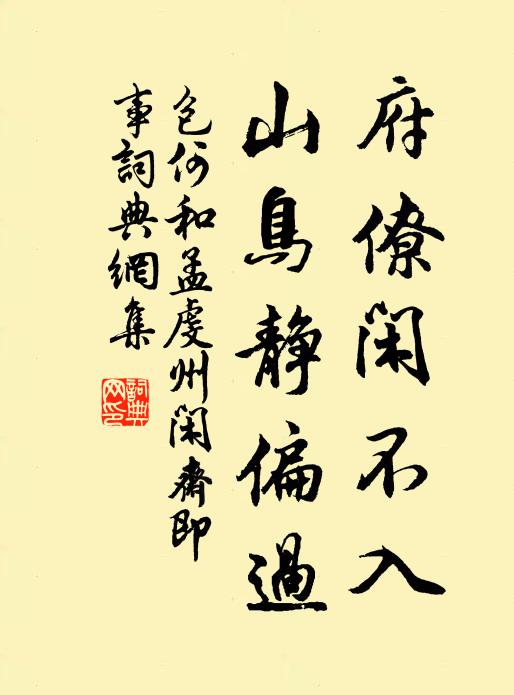 府僚閑不入
山鳥靜偏過
包何和孟虔州閑齋即
事詞典網集
詞典
网印